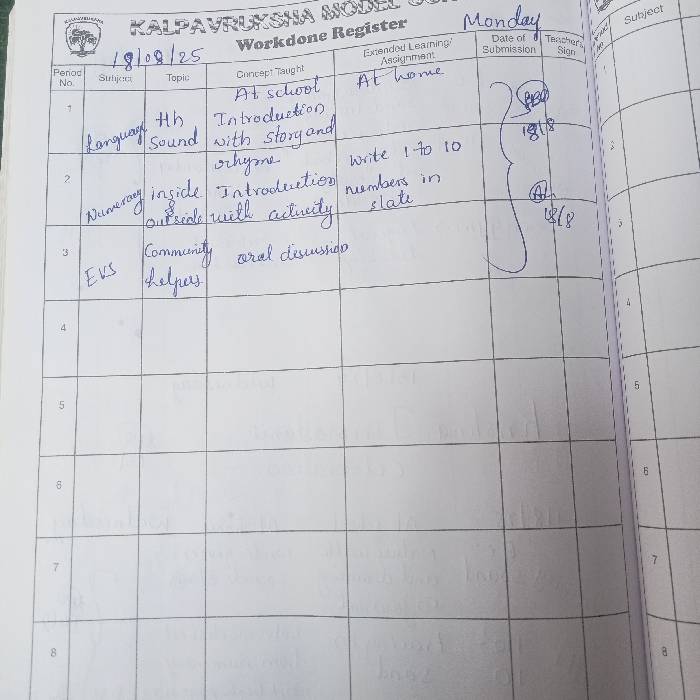 KALPAVRUKSHA MODEL
Workdone Register
18/08/25
Monday
Period No.
Subject
Topic
Concept Taught
Extended Learning/ Assignment
Date of Submission
Teacher's Sign
At school
At home
1
Language
Hh Sound
Introduction with story and rhyme
2
Numeracy
inside & outside
Introduction with activity
write 1 to 10 numbers in slate
18/8
18/8
3
EVS
Community helpers
oral discussion
4
5
6
7
8
Subject
4
5
6
7
8